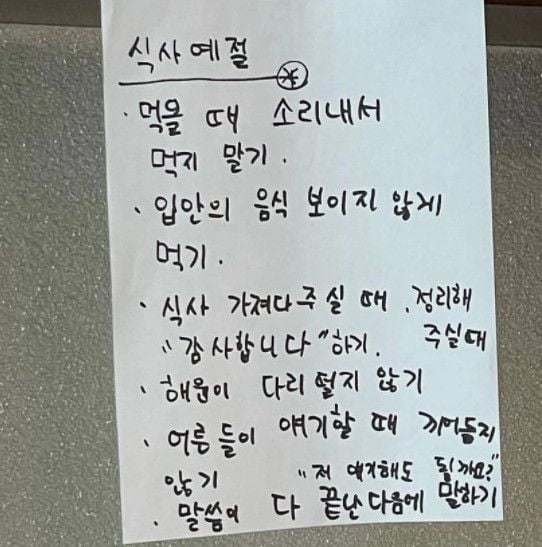 식사예절
· 먹을 때 소리내서
먹지 말기.
· 입안의 음식 보이지 않게
먹기.
· 식사 가져다주실 때, 정리해
"감사합니다"하기. 주실때
· 해원이 다리 떨지 않기
· 어른들이 얘기할 때 끼어들지
않기 "저 얘기해도 될까요?"
· 말씀이 다 끝난다음에 말하기